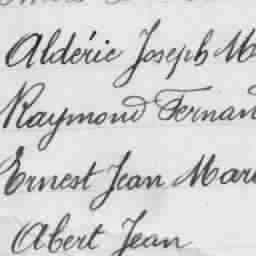 Aldéric Joseph M
Raymond Fernan
Ernest Jean Mari
Abert Jean